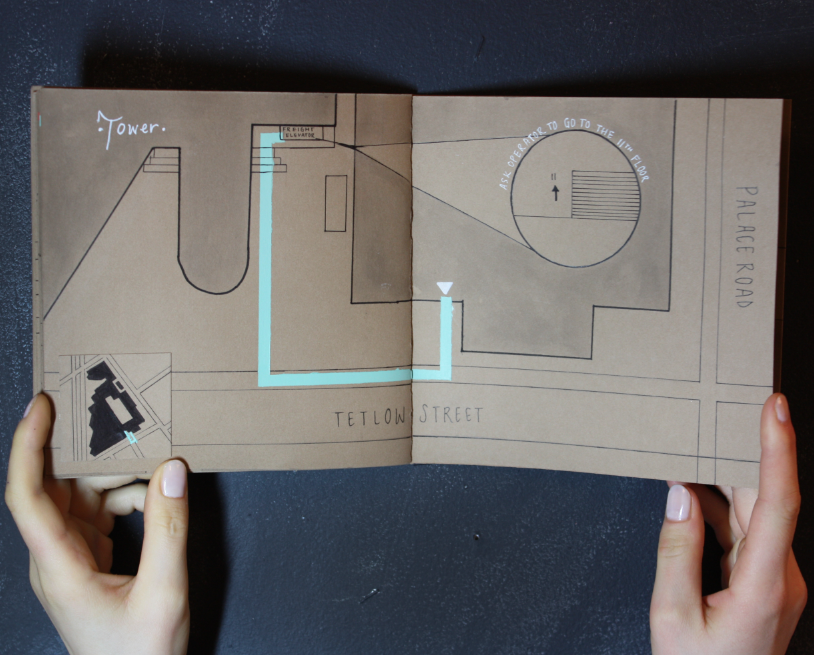 Tower.
FREIGHT
ELEVATOR
ASK OPERATOR TO GO TO THE 11TH FLOOR
11
PALACE ROAD
TETLOW STREET